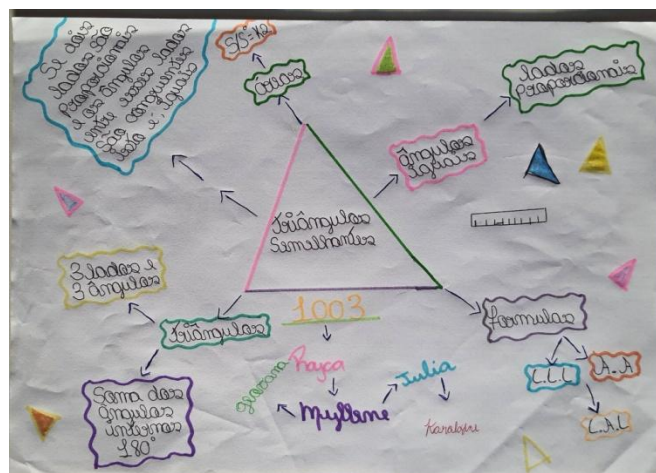 Se dois
lados são
proporcionais
e os ângulos
entre esses lados
são congruentes
isto é, iguais
S/S'=K2
Áreas
lados
proporcionais
ângulos
iguais
Triângulos
Semelhantes
3 lados e
3 ângulos
Triângulos
Soma dos
ângulos
internos
180°
1003
Rayca
Myllene
Julia
formulas
L.L.L
A.A
L.A.L